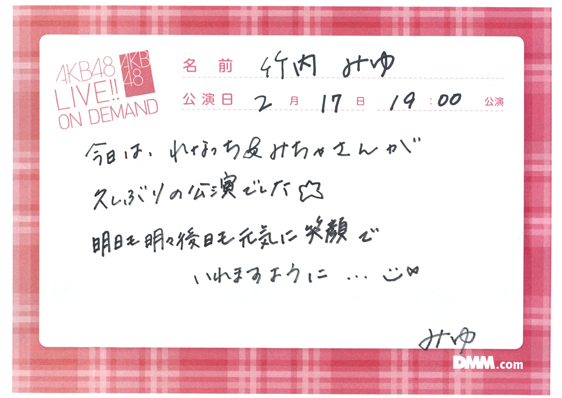 AKB48
LIVE!!
ON DEMAND
AKB
48
名前 竹内 みゆ
公演日 2月17日 19:00 公演
今日は、れなっち&みちゃさんが
久しぶりの公演でした☆
明日も明々後日も元気に笑顔で
いれますように…
みゆ
DMM.com